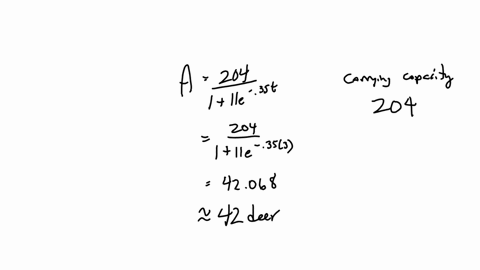 A = 204 / 1 + 11e^-.35t
= 204 / 1 + 11e^-.35(3)
= 42.068
≈ 42 deer
Carrying capacity
204